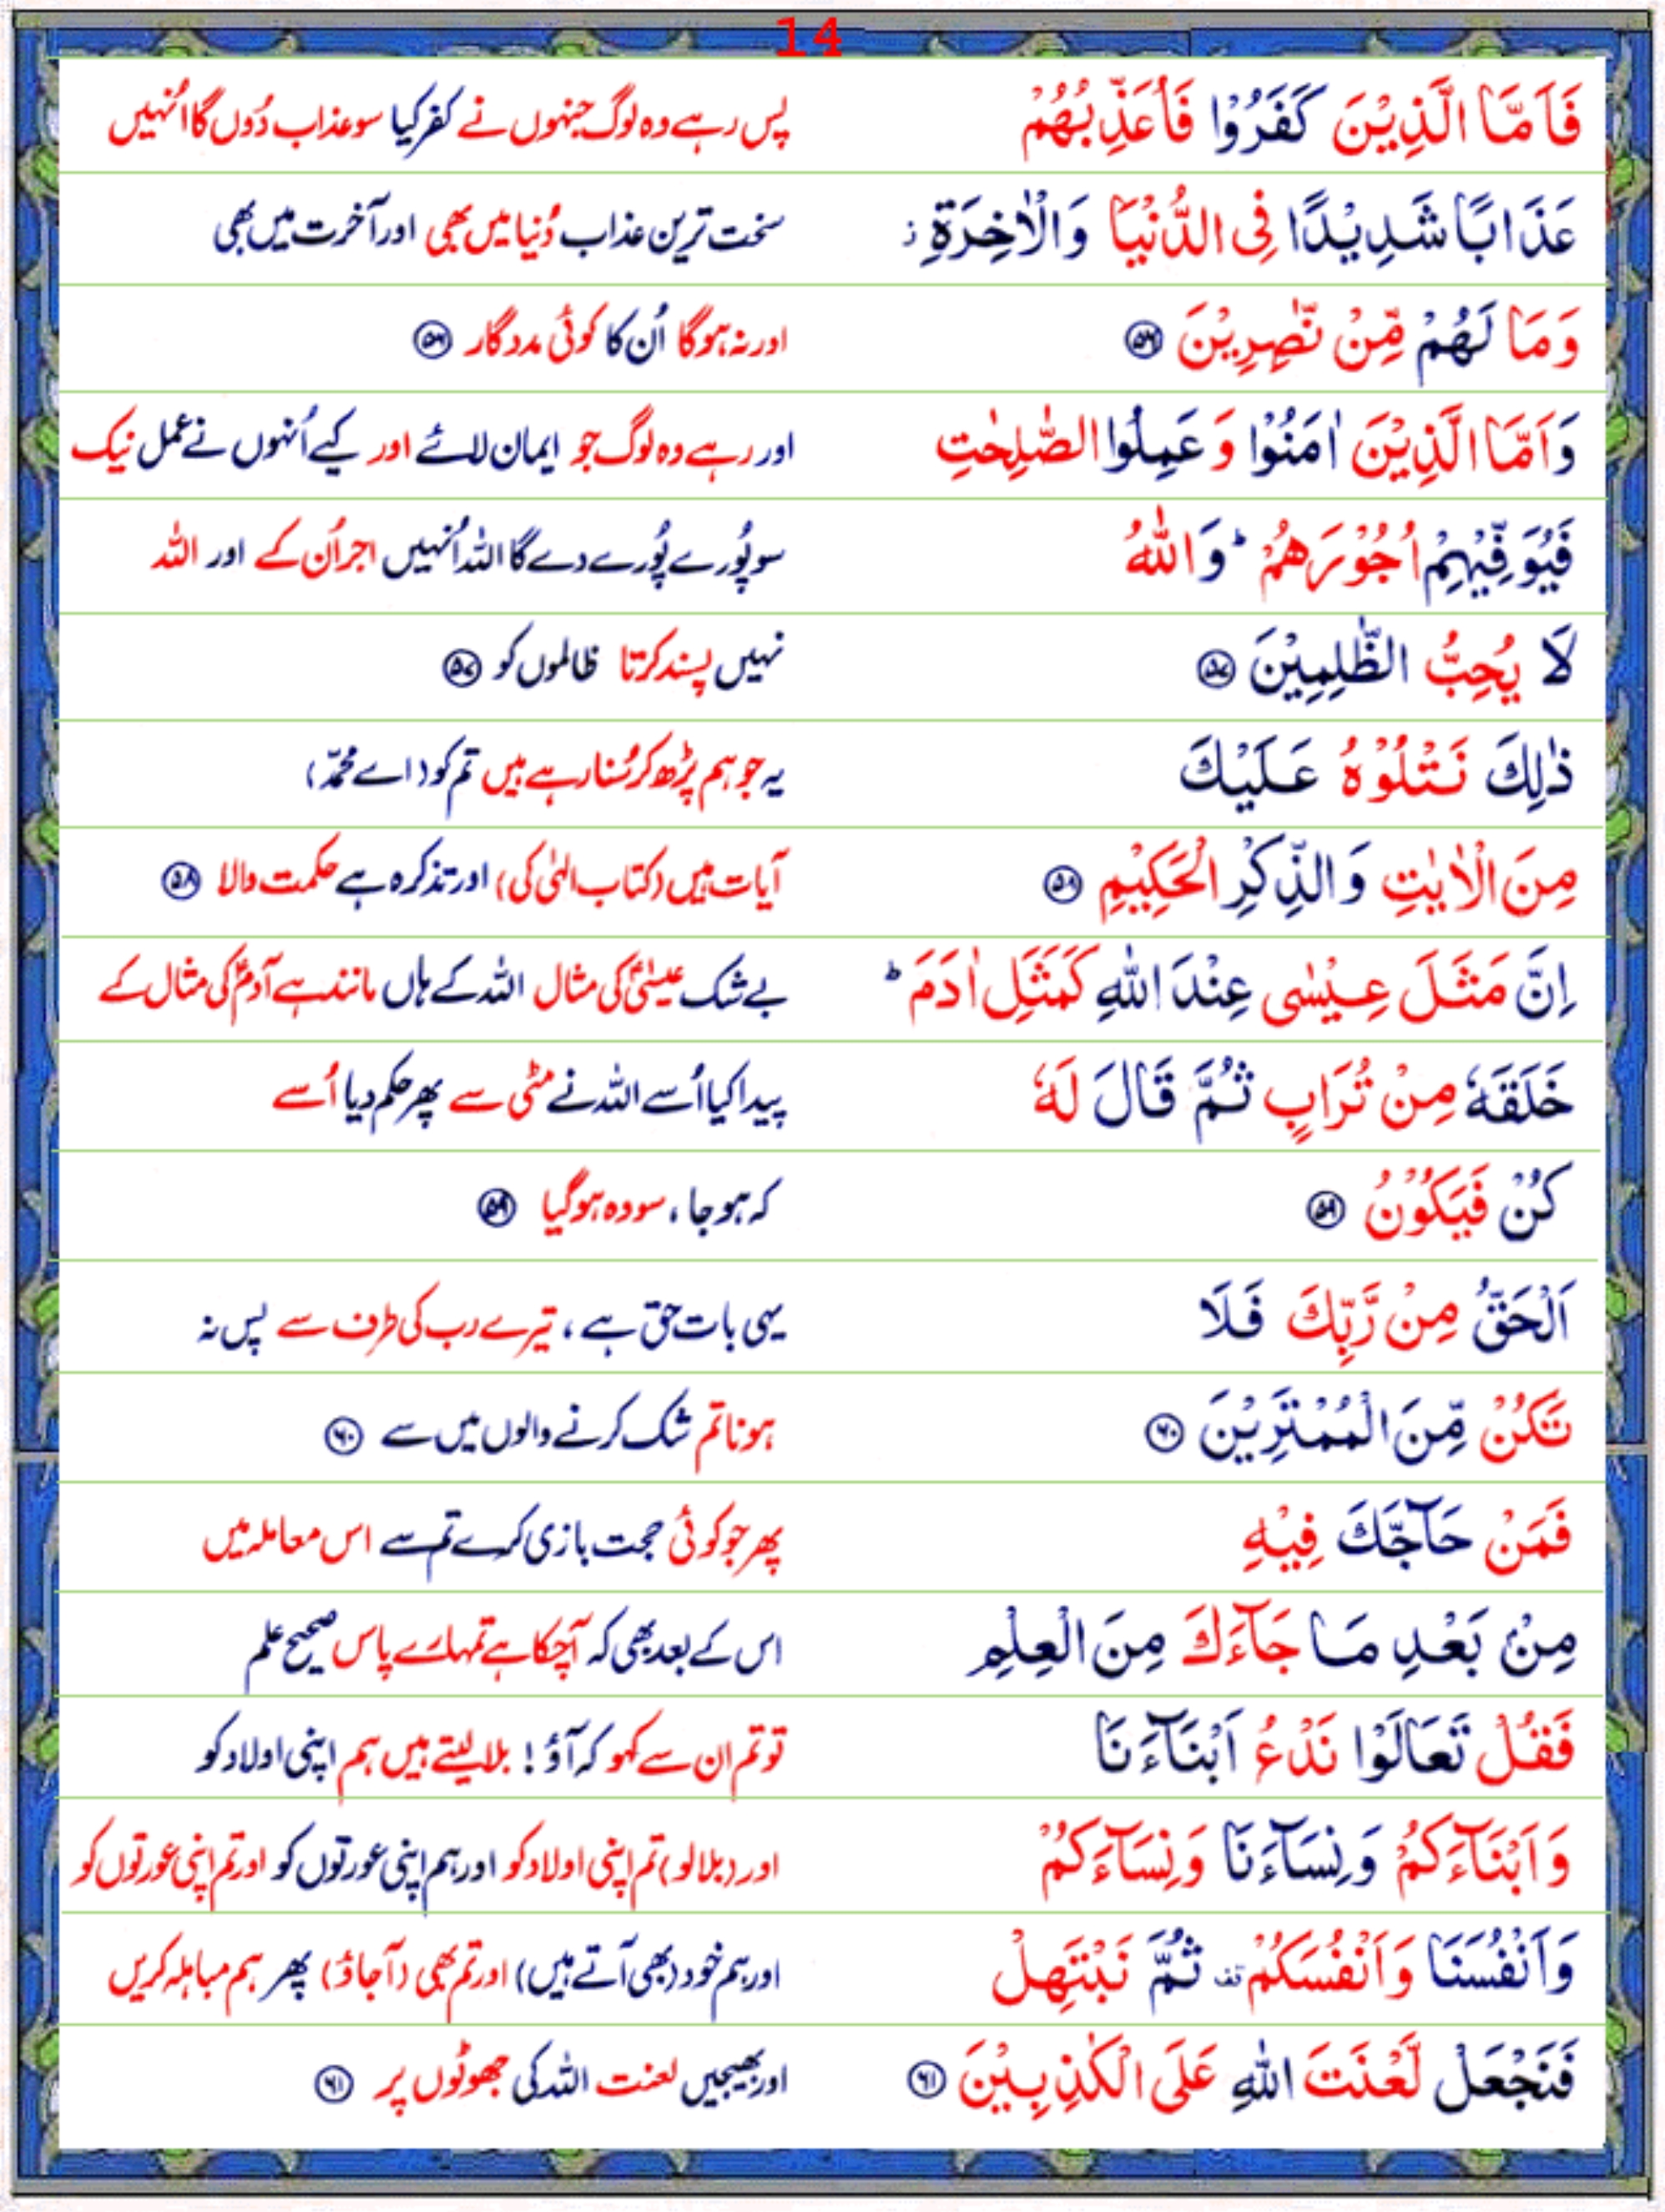 14
فَاَمَّا الَّذِيْنَ كَفَرُوْا فَاُعَذِّبُهُمْ
پس رہے وہ لوگ جنہوں نے کفر کیا سو عذاب دُوں گا اُنہیں
عَذَابًا شَدِيْدًا فِى الدُّنْيَا وَالْاٰخِرَةِ ز
سخت ترین عذاب دُنیا میں بھی اور آخرت میں بھی
وَمَا لَهُمْ مِّنْ نّٰصِرِيْنَ ۵۶
اور نہ ہوگا اُن کا کوئی مددگار ۵۶
وَاَمَّا الَّذِيْنَ اٰمَنُوْا وَعَمِلُوا الصّٰلِحٰتِ
اور رہے وہ لوگ جو ایمان لائے اور کیے اُنہوں نے عمل نیک
فَيُوَفِّيْهِمْ اُجُوْرَهُمْ ؕ وَاللّٰهُ
سو پُورے پُورے دے گا اللہ اُنہیں اجر اُن کے اور اللہ
لَا يُحِبُّ الظّٰلِمِيْنَ ۵۷
نہیں پسند کرتا ظالموں کو ۵۷
ذٰلِكَ نَتْلُوْهُ عَلَيْكَ
یہ جو ہم پڑھ کر سُنا رہے ہیں تم کو (اے محمّد)
مِنَ الْاٰيٰتِ وَالذِّكْرِ الْحَكِيْمِ ۵۸
آیات ہیں (کتاب الہٰی کی) اور تذکرہ ہے حکمت والا ۵۸
اِنَّ مَثَلَ عِيْسٰى عِنْدَ اللّٰهِ كَمَثَلِ اٰدَمَ ؕ
بے شک عیسیٰؑ کی مثال اللہ کے ہاں مانند ہے آدمؑ کی مثال کے
خَلَقَهٗ مِنْ تُرَابٍ ثُمَّ قَالَ لَهٗ
پیدا کیا اُسے اللہ نے مٹی سے پھر حکم دیا اُسے
كُنْ فَيَكُوْنُ ۵۹
کہ ہو جا ، سو وہ ہوگیا ۵۹
اَلْحَقُّ مِنْ رَّبِّكَ فَلَا
یہی بات حق ہے ، تیرے رب کی طرف سے پس نہ
تَكُنْ مِّنَ الْمُمْتَرِيْنَ ۶۰
ہونا تم شک کرنے والوں میں سے ۶۰
فَمَنْ حَآجَّكَ فِيْهِ
پھر جو کوئی حجت بازی کرے تم سے اس معاملہ میں
مِنْۢ بَعْدِ مَا جَآءَكَ مِنَ الْعِلْمِ
اس کے بعد بھی کہ آچکا ہے تمہارے پاس صحیح علم
فَقُلْ تَعَالَوْا نَدْعُ اَبْنَآءَنَا
تو تم ان سے کہو کہ آؤ ! بلا لیتے ہیں ہم اپنی اولاد کو
وَاَبْنَآءَكُمْ وَنِسَآءَنَا وَنِسَآءَكُمْ
اور (بلا لو) تم اپنی اولاد کو اور ہم اپنی عورتوں کو اور تم اپنی عورتوں کو
وَاَنْفُسَنَا وَاَنْفُسَكُمْ قف ثُمَّ نَبْتَهِلْ
اور ہم خود (بھی آتے ہیں) اور تم بھی (آ جاؤ) پھر ہم مباہلہ کریں
فَنَجْعَلْ لَّعْنَتَ اللّٰهِ عَلَى الْكٰذِبِيْنَ ۶۱
اور بھیجیں لعنت اللہ کی جھوٹوں پر ۶۱